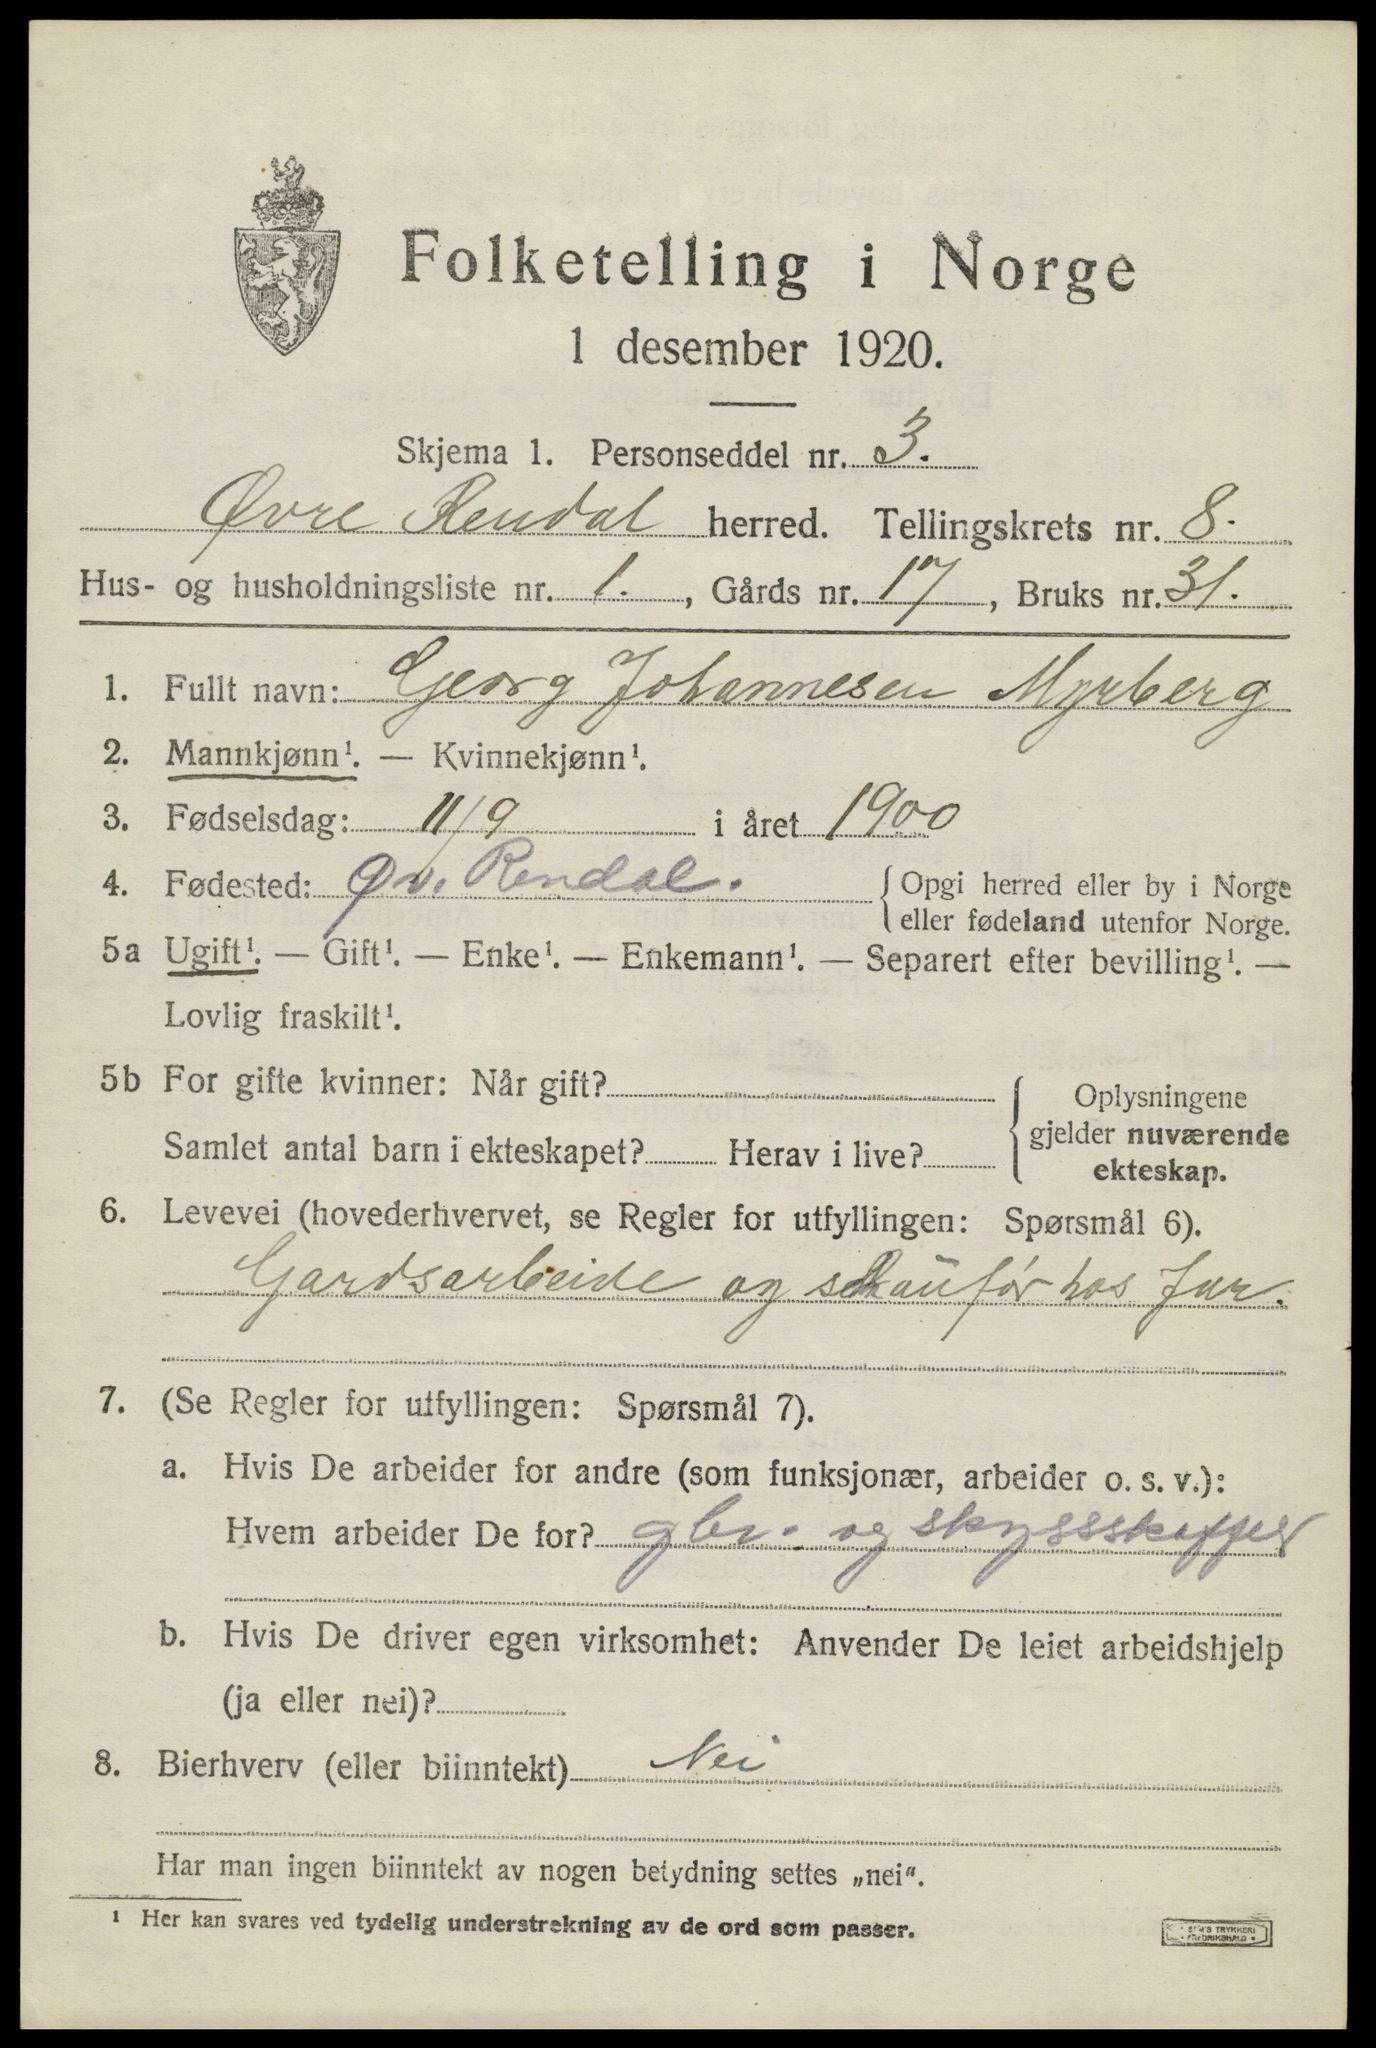 Folketelling i Norge
1 desember 1920.
Skjema 1. Personseddel nr. 3.
Øvre Rendal herred. Tellingskrets nr. 8.
Hus- og husholdningsliste nr. 1., Gårds nr. 17, Bruks nr. 31.
1. Fullt navn: Georg Johannesen Myrberg
2. Mannkjønn¹. — Kvinnekjønn¹.
3. Fødselsdag: 11/9 i året 1900
4. Fødested: Øv. Rendal. { Opgi herred eller by i Norge
eller fødeland utenfor Norge.
5a Ugift¹. — Gift¹. — Enke¹. — Enkemann¹. — Separert efter bevilling¹. —
Lovlig fraskilt¹.
5b For gifte kvinner: Når gift? { Oplysningene
gjelder nuværende
Samlet antal barn i ekteskapet? Herav i live?
ekteskap.
6. Levevei (hovederhvervet, se Regler for utfyllingen: Spørsmål 6).
Gardsarbeide og schaufør hos far.
7. (Se Regler for utfyllingen: Spørsmål 7).
a. Hvis De arbeider for andre (som funksjonær, arbeider o. s. v.):
Hvem arbeider De for? gbr. og skyssskaffer
b. Hvis De driver egen virksomhet: Anvender De leiet arbeidshjelp
(ja eller nei)?
8. Bierhverv (eller biinntekt) Nei
Har man ingen biinntekt av nogen betydning settes „nei“.
¹ Her kan svares ved tydelig understrekning av de ord som passer.
TRYKKERI